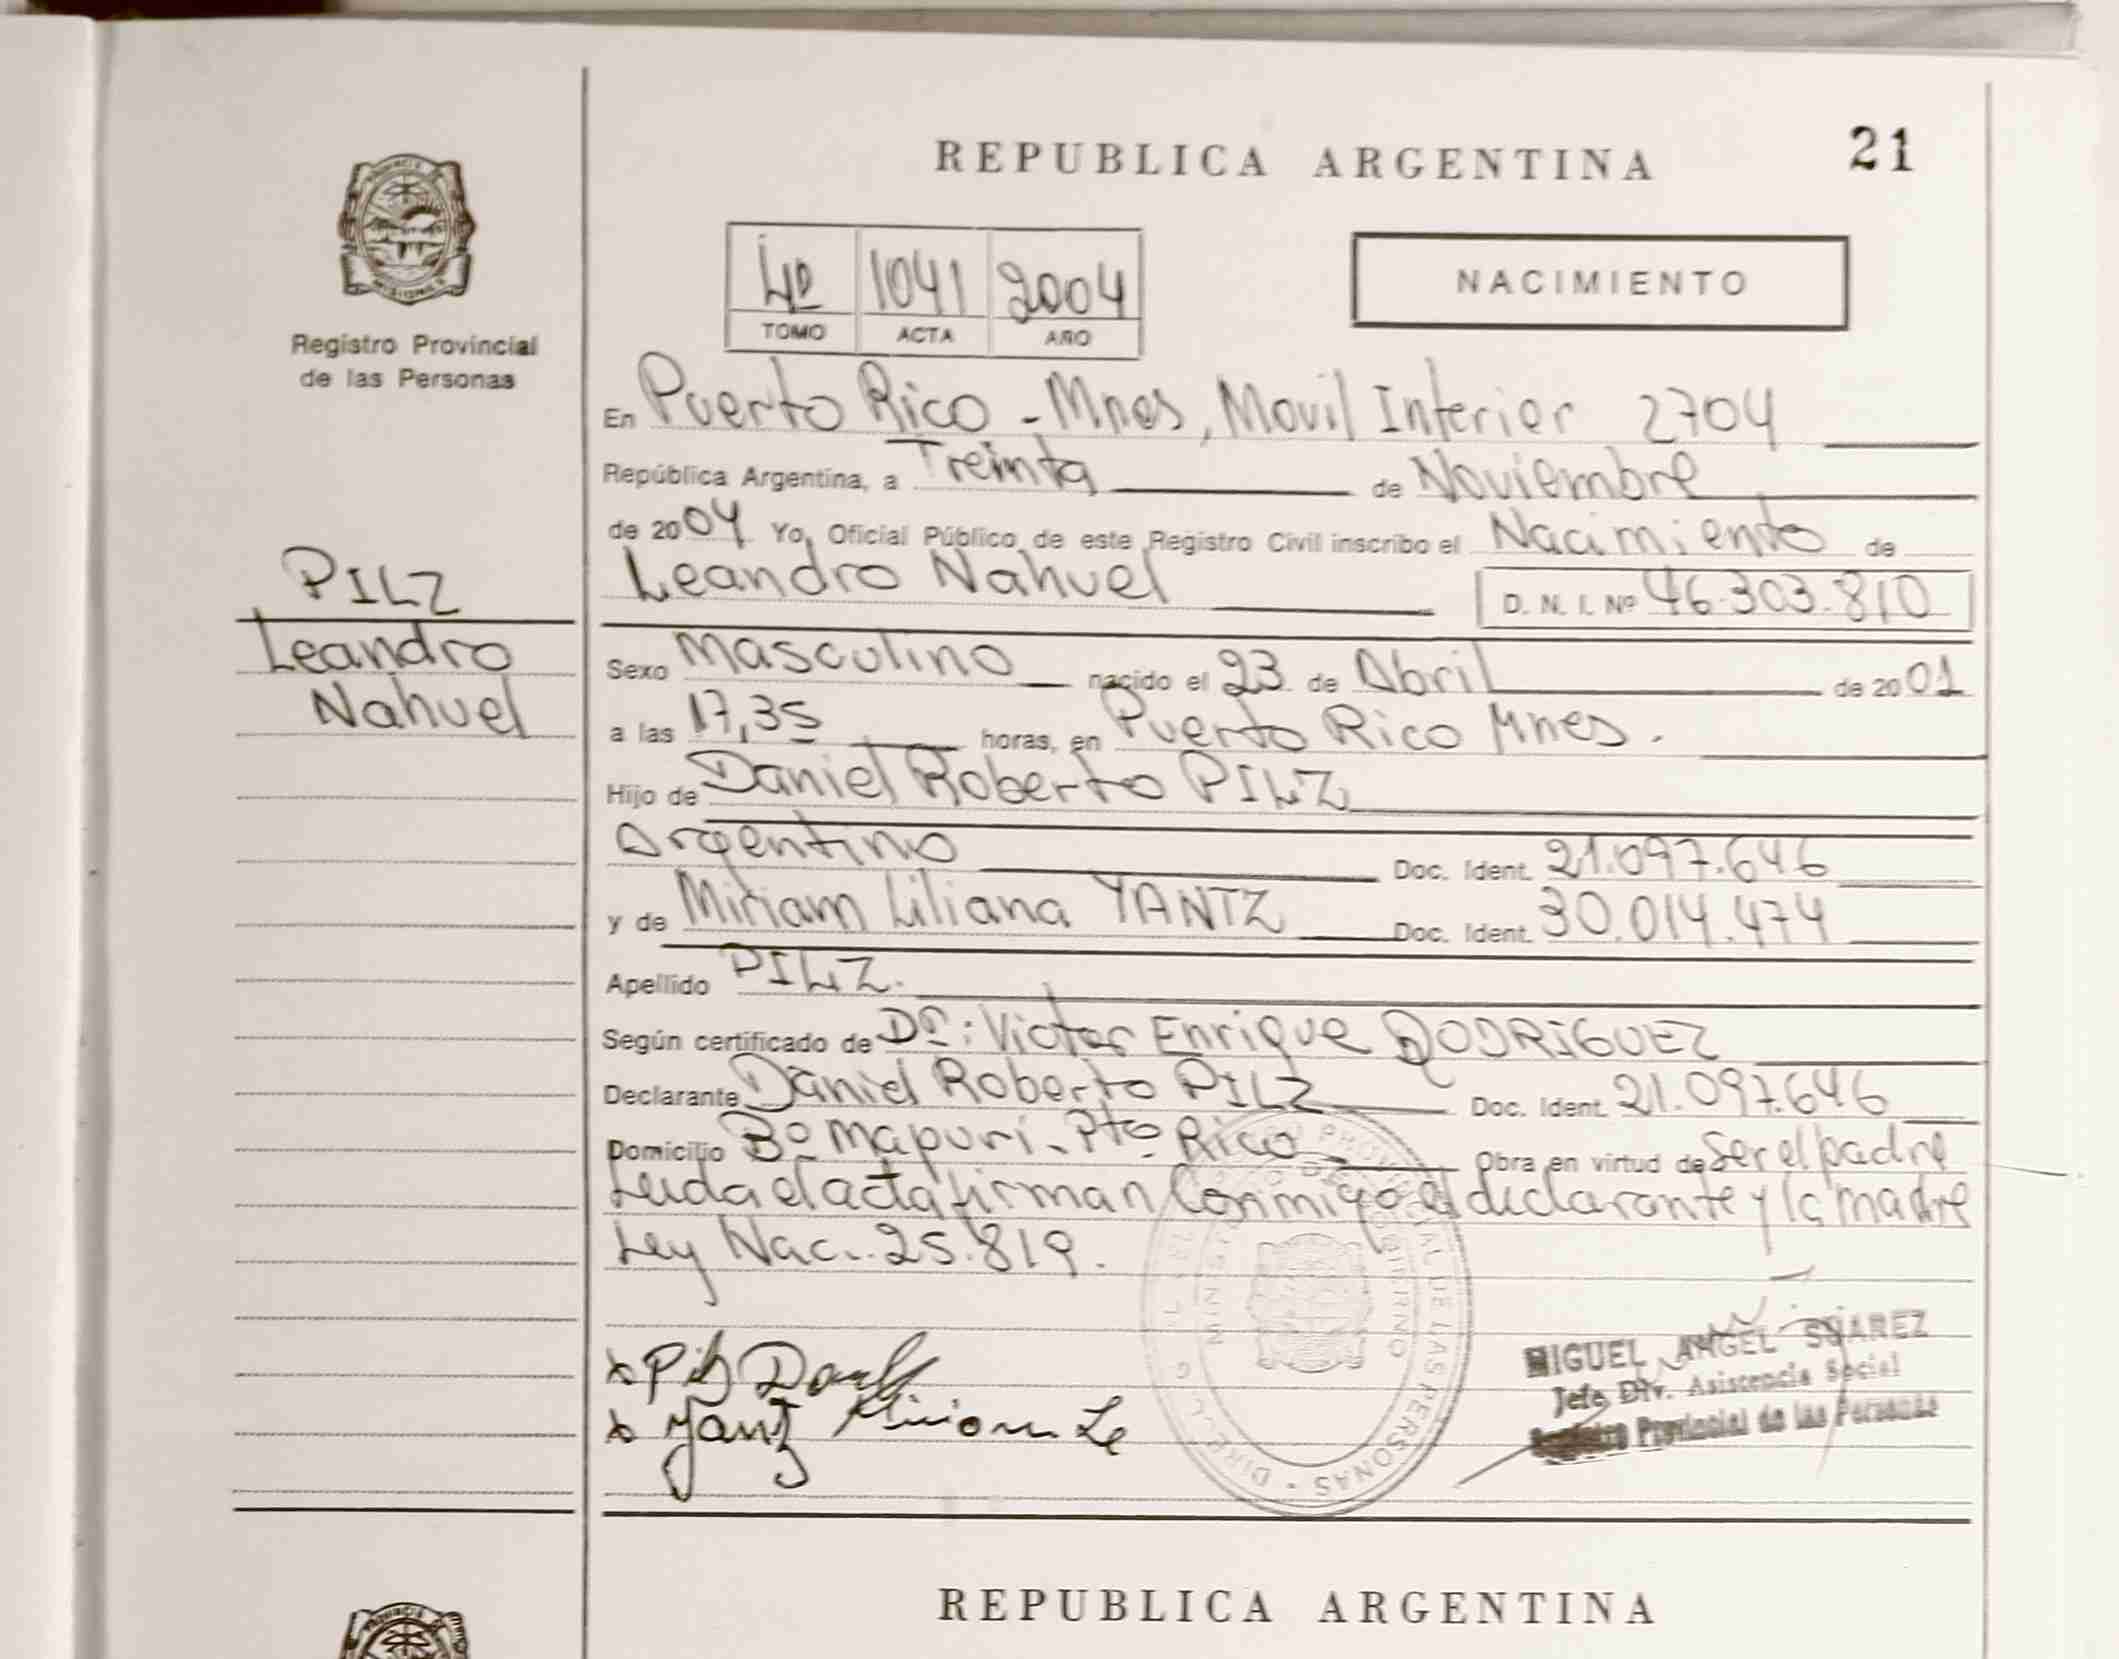 REPUBLICA ARGENTINA
21
PROVINCIA
MISIONES
Registro Provincial
de las Personas
4º 1041 2004
TOMO ACTA AÑO
NACIMIENTO
En Puerto Rico - Mnes, Movil Interior 2704
República Argentina, a Treinta de Noviembre
de 2004 Yo, Oficial Público de este Registro Civil inscribo el Nacimiento de
Leandro Nahuel D. N. I. Nº 46.303.810
PILZ
Leandro
Nahuel
Sexo Masculino nacido el 23 de Abril de 2001
a las 17,35 horas, en Puerto Rico Mnes.
Hijo de Daniel Roberto PILZ
Argentino Doc. Ident. 21.097.646
y de Miriam Liliana YANTZ Doc. Ident. 30.014.474
Apellido PILZ.
Según certificado de Dr: Victor Enrique RODRIGUEZ
Declarante Daniel Roberto PILZ Doc. Ident. 21.097.646
Domicilio Bº Mapuri - Pto Rico Obra en virtud de Ser el padre
Leida el acta firman Conmigo el declarante y la madre
Ley Nac. 25.819.
x Pilz Daniel
x Yantz Miriam Li
MIGUEL ANGEL SUAREZ
Jefe Div. Asistencia Social
Registro Provincial de las Personas
REPUBLICA ARGENTINA